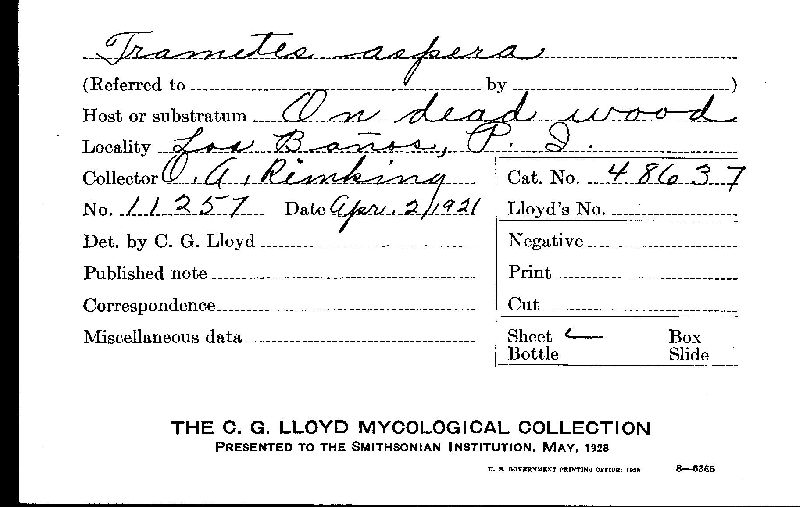 Trametes aspera
(Referred to by )
Host or substratum On dead wood
Locality Los Baños, P. I.
Collector O. A. Reinking Cat. No. 48637
No. 11257 Date Apr. 2/1921 Lloyd's No.
Det. by C. G. Lloyd Negative
Published note Print
Correspondence Cut
Miscellaneous data Sheet Box
Bottle Slide
THE C. G. LLOYD MYCOLOGICAL COLLECTION
PRESENTED TO THE SMITHSONIAN INSTITUTION, MAY, 1928
U. S. GOVERNMENT PRINTING OFFICE: 1928 8—6365